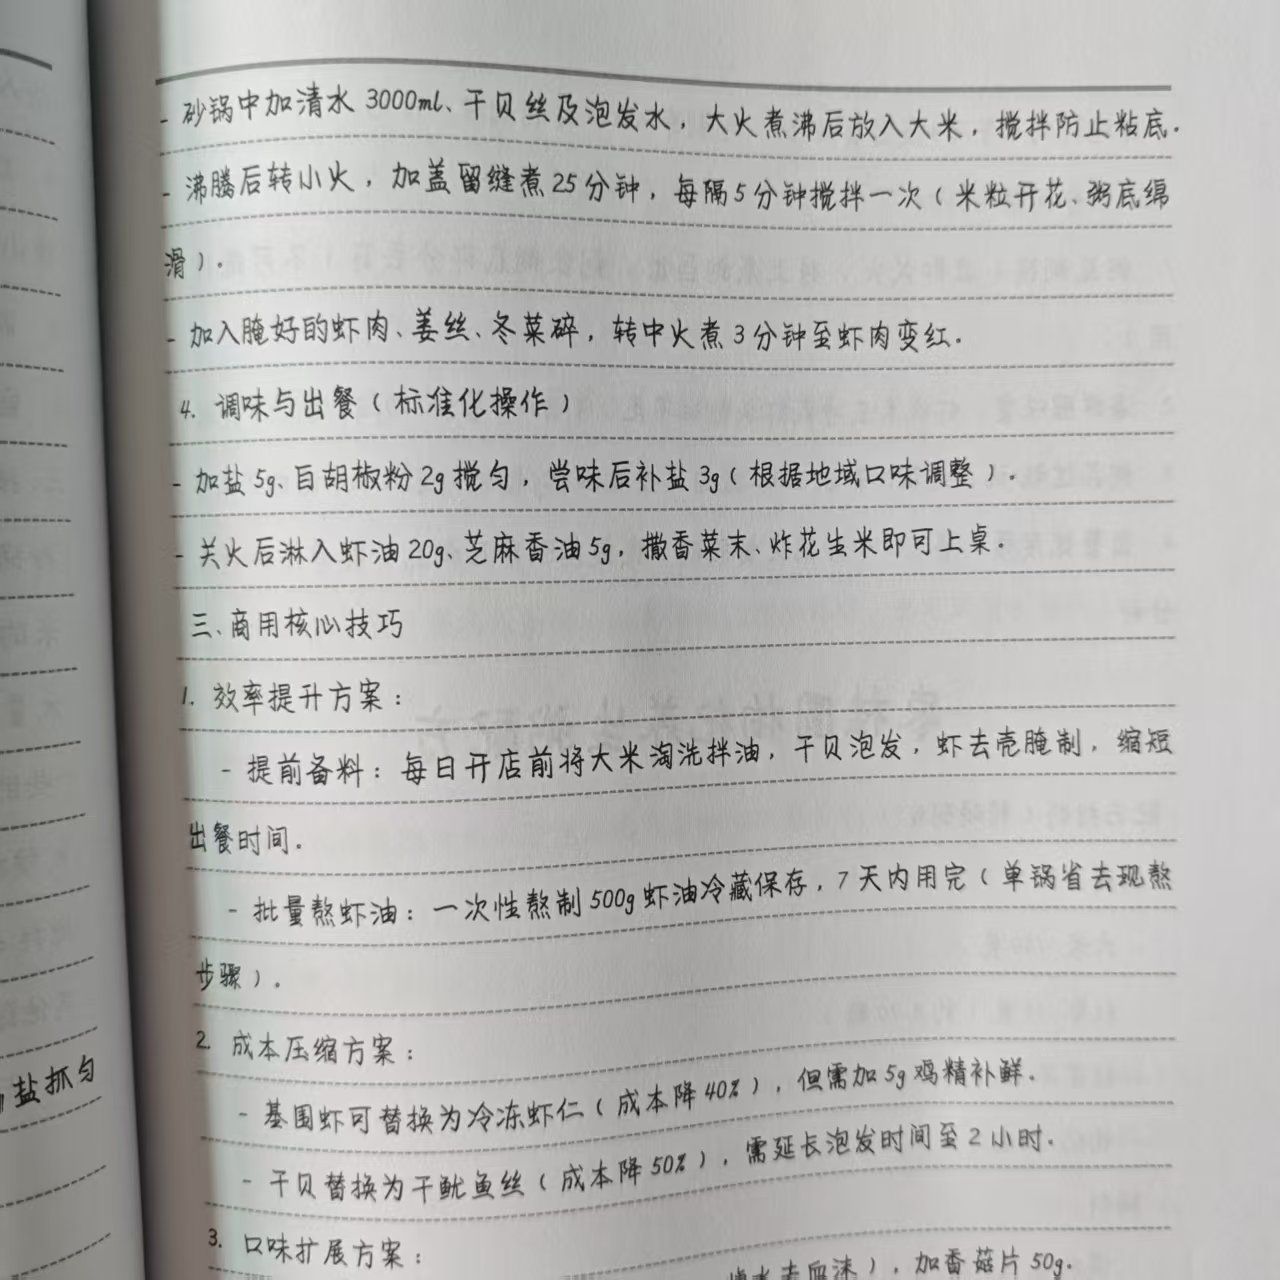 - 砂锅中加清水 3000ml、干贝丝及泡发水，大火煮沸后放入大米，搅拌防止粘底.
- 沸腾后转小火，加盖留缝煮25分钟，每隔5分钟搅拌一次（米粒开花、粥底绵
滑）.
- 加入腌好的虾肉、姜丝、冬菜碎，转中火煮3分钟至虾肉变红.
4. 调味与出餐（标准化操作）
- 加盐5g、白胡椒粉2g搅匀，尝味后补盐3g（根据地域口味调整）.
- 关火后淋入虾油20g、芝麻香油5g，撒香菜末、炸花生米即可上桌.
三、商用核心技巧
1. 效率提升方案：
- 提前备料：每日开店前将大米淘洗拌油，干贝泡发，虾去壳腌制，缩短
出餐时间.
- 批量熬虾油：一次性熬制500g虾油冷藏保存，7天内用完（单锅省去现熬
步骤）.
2. 成本压缩方案：
- 基围虾可替换为冷冻虾仁（成本降40%），但需加5g鸡精补鲜.
- 干贝替换为干鱿鱼丝（成本降50%），需延长泡发时间至2小时.
3. 口味扩展方案：
水去血沫），加香菇片50g.
盐抓匀